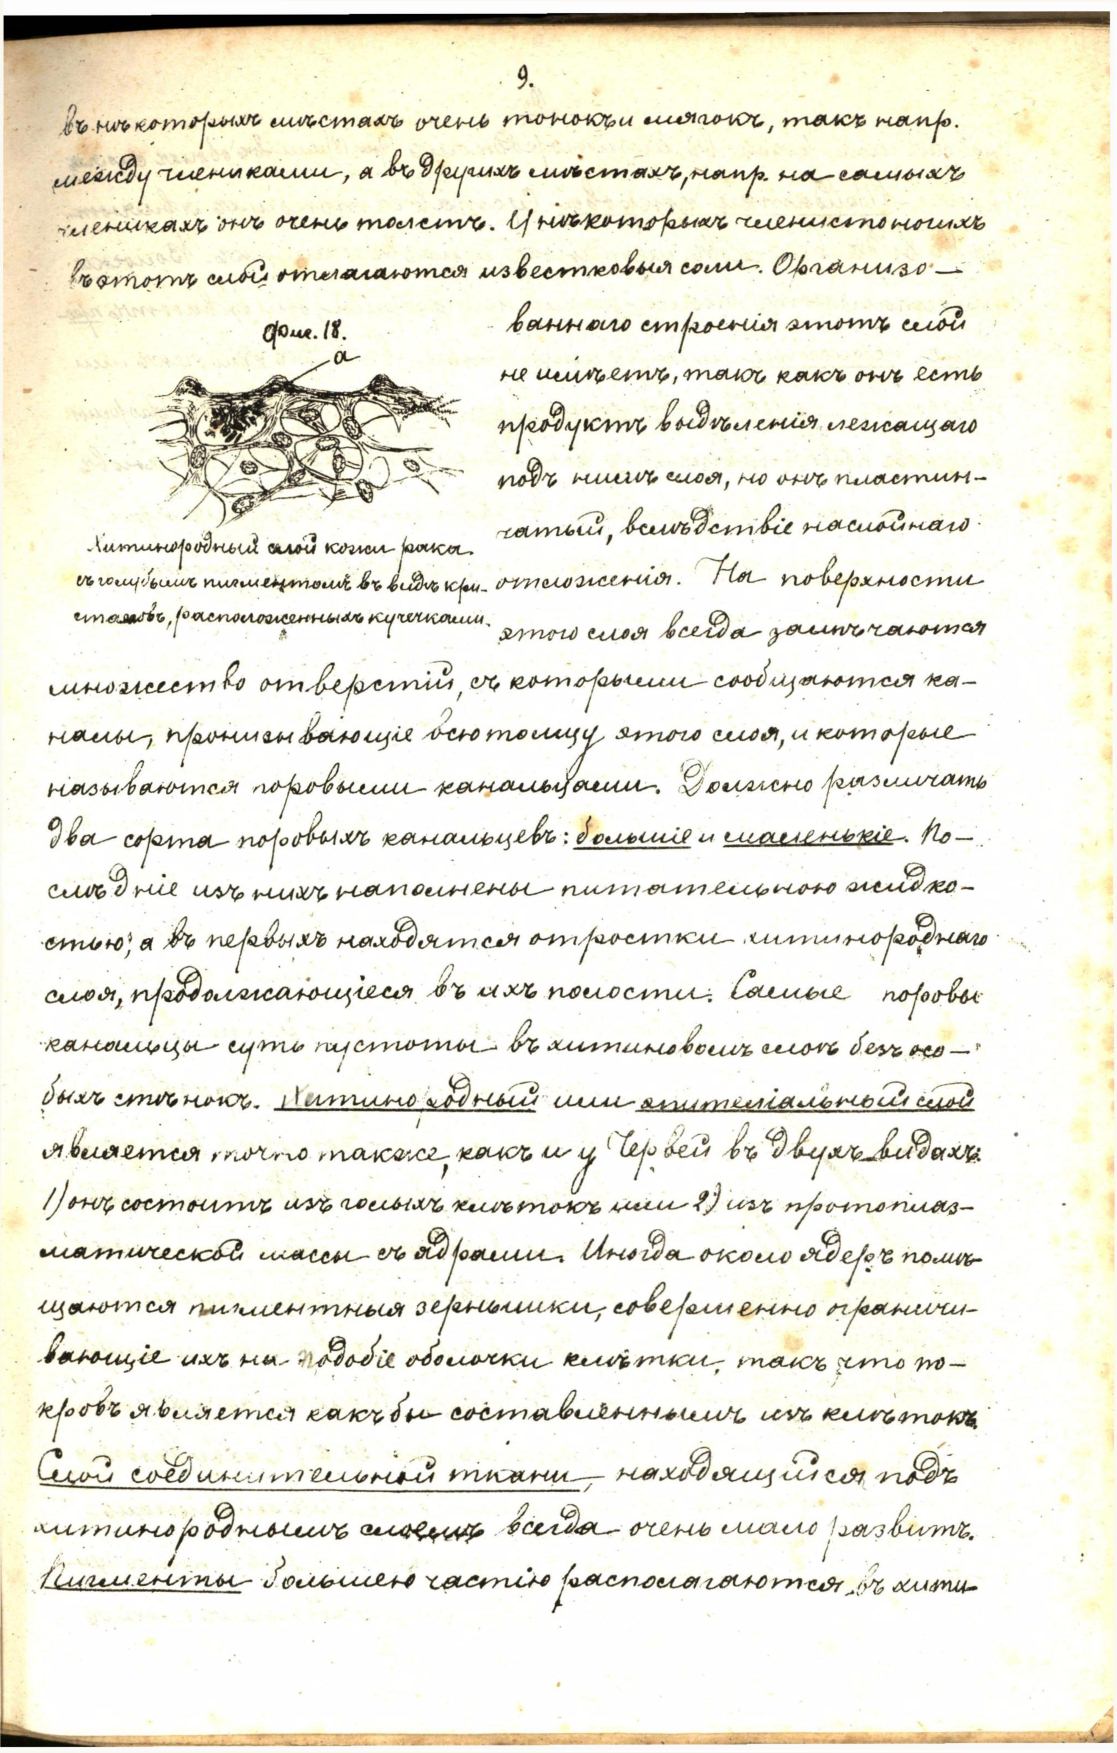 9.
въ нѣкоторыхъ мѣстахъ очень тонокъ и мягокъ, такъ напр.
между члениками, а въ другихъ мѣстахъ, напр. на самыхъ
членикахъ онъ очень толстъ. У нѣкоторыхъ членистоногихъ
въ этотъ слой отлагаются известковыя соли. Организо-
ваннаго строенія этотъ слой
не имѣетъ, такъ какъ онъ есть
продуктъ выдѣленія лежащаго
подъ нимъ слоя, но онъ пластин-
чатый, вслѣдствіе наслойнаго
отложенія. На поверхности
этого слоя всегда замѣчаются
Фиг. 18.
а
Хитинородный слой кожи рака
съ голубымъ пигментомъ въ видѣ кри-
сталовъ, расположенныхъ кучечками.
множество отверстій, съ которыми сообщаются ка-
налы, пронизывающіе всю толщу этого слоя, и которые
называются поровыми канальцами. Должно различать
два сорта поровыхъ канальцевъ: большіе и маленькіе. По-
слѣдніе изъ нихъ наполнены питательною жидко-
стью; а въ первыхъ находятся отростки хитинороднаго
слоя, продолжающіеся въ ихъ полости. Самые поровые
канальцы суть пустоты въ хитиновомъ слоѣ безъ осо-
быхъ стѣнокъ. Хитинородный или эпителіальный слой
является точно также, какъ и у Червей въ двухъ видахъ:
1) онъ состоитъ изъ голыхъ клѣтокъ или 2) изъ протоплаз-
матической массы съ ядрами. Иногда около ядеръ помѣ-
щаются пигментныя зернышки, совершенно ограничи-
вающіе ихъ на подобіе оболочки клѣтки, такъ что по-
кровъ является какъ бы составленнымъ изъ клѣтокъ.
Слой соединительной ткани, находящійся подъ
хитинороднымъ слоемъ всегда очень мало развитъ.
Пигменты большею частію располагаются въ хити-